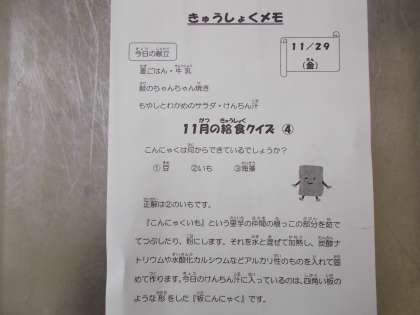 きゅうしょくメモ
11/29
(金)
今日の献立
麦ごはん・牛乳
鮭のちゃんちゃん焼き
もやしとわかめのサラダ・けんちん汁
11月の給食クイズ ④
こんにゃくは何からできているでしょうか？
①豆 ②いも ③海藻
正解は②のいもです。
『こんにゃくいも』という里芋の仲間の根っこの部分を茹
でてつぶしたり、粉にします。それを水と混ぜて加熱し、炭酸ナ
トリウムや水酸化カルシウムなどアルカリ性のものを入れて固
めて作ります。今日のけんちん汁に入っているのは、四角い板の
ような形をした『板こんにゃく』です。